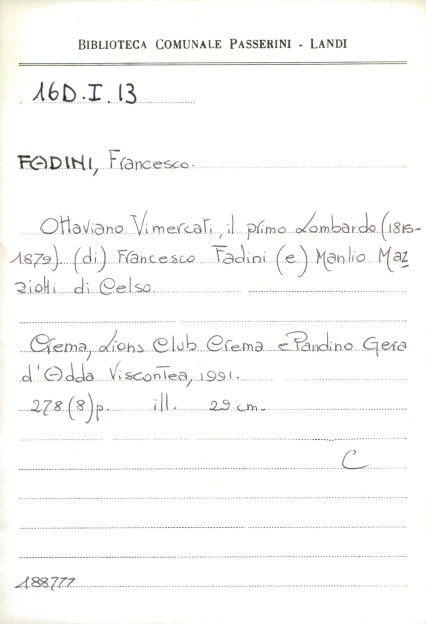 BIBLIOTECA COMUNALE PASSERINI - LANDI
16D.I.13
FADINI, Francesco.
Ottaviano Vimercati, il primo Lombardo (1815-
1879). (di) Francesco Fadini (e) Manlio Maz
ziotti di Celso.
Crema, Lions Club Crema e Pandino Gera
d'Adda Viscontea, 1991.
278 (8) p. ill. 29 cm.
C
188777